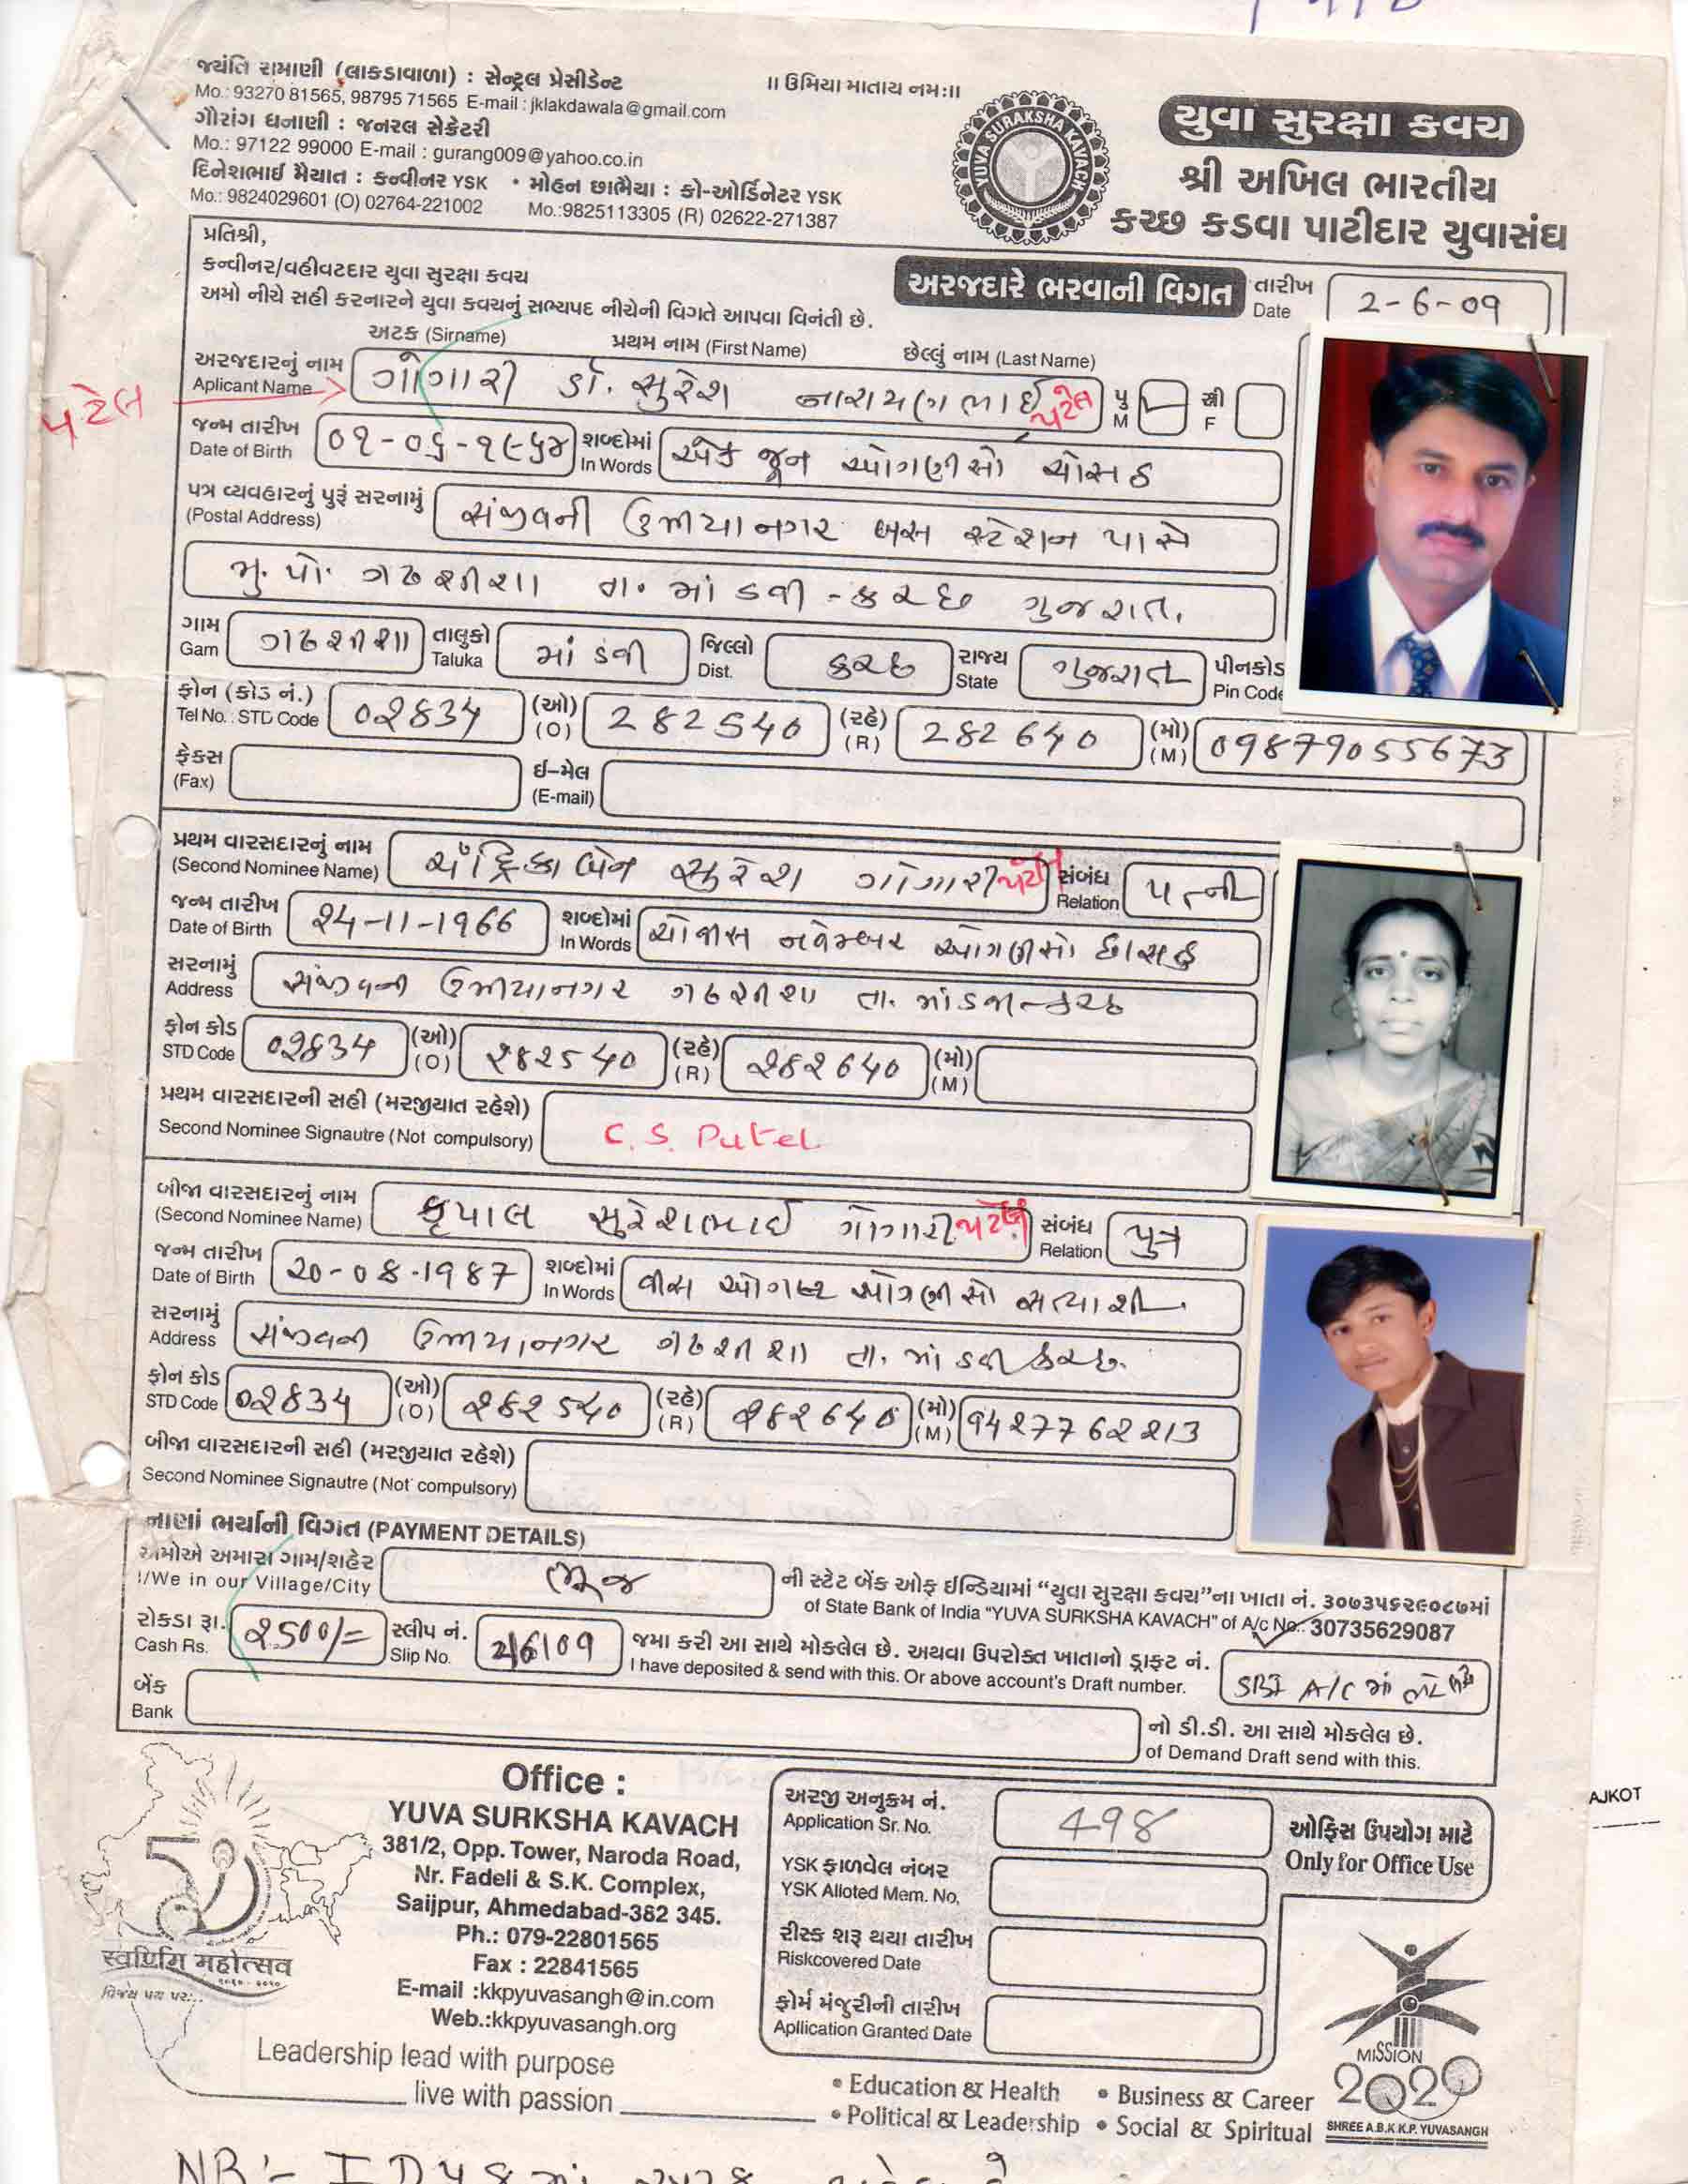 જયંતિ રામાણી (લાકડાવાળા) : સેન્ટ્રલ પ્રેસીડેન્ટ
Mo.: 93270 81565, 98795 71565 E-mail : jklakdawala@gmail.com
ગૌરાંગ ધનાણી : જનરલ સેક્રેટરી
Mo.: 97122 99000 E-mail : gurang009@yahoo.co.in
દિનેશભાઈ મૈયાત : કન્વીનર YSK • મોહન છાભૈયા : કો-ઓર્ડિનેટર YSK
Mo.: 9824029601 (O) 02764-221002 Mo.:9825113305 (R) 02622-271387
॥ ઉમિયા માતાય નમઃ॥
YUVA SURAKSHA KAVACH
યુવા સુરક્ષા કવચ
શ્રી અખિલ ભારતીય
કચ્છ કડવા પાટીદાર યુવાસંઘ
પ્રતિશ્રી,
કન્વીનર/વહીવટદાર યુવા સુરક્ષા કવચ
અમો નીચે સહી કરનારને યુવા કવચનું સભ્યપદ નીચેની વિગતે આપવા વિનંતી છે.
અરજદારે ભરવાની વિગત તારીખ Date 2-6-09
અટક (Sirname) પ્રથમ નામ (First Name) છેલ્લું નામ (Last Name)
પટેલ
અરજદારનું નામ Aplicant Name ગોગારી ડૉ. સુરેશ નારાયણભાઈ પટેલ પુ M સ્ત્રી F
જન્મ તારીખ Date of Birth ૦૧-૦૬-૧૯૬૪ શબ્દોમાં In Words એક જૂન ઓગણીસો ચોસઠ
પત્ર વ્યવહારનું પુરૂં સરનામું (Postal Address) સંજીવની ઉમીયાનગર બસ સ્ટેશન પાસે
મુ. પો. ગઢશીશા તા. માંડવી - કચ્છ ગુજરાત.
ગામ Gam ગઢશીશા તાલુકો Taluka માંડવી જિલ્લો Dist. કચ્છ રાજ્ય State ગુજરાત પીનકોડ Pin Code
ફોન (કોડ નં.) Tel No. STD Code 02834 (ઓ) (O) 282540 (રહે) (R) 282640 (મો) (M) 09879055673
ફેક્સ (Fax) ઈ-મેલ (E-mail)
પ્રથમ વારસદારનું નામ (Second Nominee Name) ચંદ્રિકાબેન સુરેશ ગોગારી પટેલ સંબંધ Relation પત્ની
જન્મ તારીખ Date of Birth 24-11-1966 શબ્દોમાં In Words ચોવીસ નવેમ્બર ઓગણીસો છાસઠ
સરનામું Address સંજીવની ઉમીયાનગર ગઢશીશા તા. માંડવી-કચ્છ
ફોન કોડ STD Code 02834 (ઓ) (O) 282540 (રહે) (R) 282640 (મો) (M)
પ્રથમ વારસદારની સહી (મરજીયાત રહેશે)
Second Nominee Signautre (Not compulsory) C. S. Patel
બીજા વારસદારનું નામ (Second Nominee Name) કૃપાલ સુરેશભાઈ ગોગારી પટેલ સંબંધ Relation પુત્ર
જન્મ તારીખ Date of Birth 20-08-1987 શબ્દોમાં In Words વીસ ઓગષ્ટ ઓગણીસો સત્યાશી.
સરનામું Address સંજીવની ઉમીયાનગર ગઢશીશા તા. માંડવી કચ્છ.
ફોન કોડ STD Code 02834 (ઓ) (O) 282540 (રહે) (R) 282640 (મો) (M) 9427762213
બીજા વારસદારની સહી (મરજીયાત રહેશે)
Second Nominee Signautre (Not compulsory)
નાણાં ભર્યાની વિગત (PAYMENT DETAILS)
અમોએ અમારા ગામ/શહેર I/We in our Village/City ભૂજ ની સ્ટેટ બેંક ઓફ ઈન્ડિયામાં “યુવા સુરક્ષા કવચ”ના ખાતા નં. ૩૦૭૩૫૬૨૯૦૮૭માં
of State Bank of India "YUVA SURKSHA KAVACH" of A/c No.: 30735629087
રોકડા રૂા. Cash Rs. 2500/= સ્લીપ નં. Slip No. 2/6/09 જમા કરી આ સાથે મોકલેલ છે. અથવા ઉપરોક્ત ખાતાનો ડ્રાફ્ટ નં.
I have deposited & send with this. Or above account's Draft number. SBI A/C માં
બેંક Bank નો ડી.ડી. આ સાથે મોકલેલ છે.
of Demand Draft send with this.
Office :
YUVA SURKSHA KAVACH
381/2, Opp. Tower, Naroda Road,
Nr. Fadeli & S.K. Complex,
Saijpur, Ahmedabad-382 345.
Ph.: 079-22801565
Fax : 22841565
E-mail :kkpyuvasangh@in.com
Web.:kkpyuvasangh.org
અરજી અનુક્રમ નં. Application Sr. No. 498
YSK ફાળવેલ નંબર YSK Alloted Mem. No.
રીસ્ક શરૂ થયા તારીખ Riskcovered Date
ફોર્મ મંજુરીની તારીખ Apllication Granted Date
ઓફિસ ઉપયોગ માટે
Only for Office Use
AJKOT
50
स्वर्णिम महोत्सव
વિજય પથ પર...
Leadership lead with purpose
live with passion
• Education & Health • Business & Career
• Political & Leadership • Social & Spiritual
MISSION
2020
SHREE A.B.K.K.P. YUVASANGH
NB:-